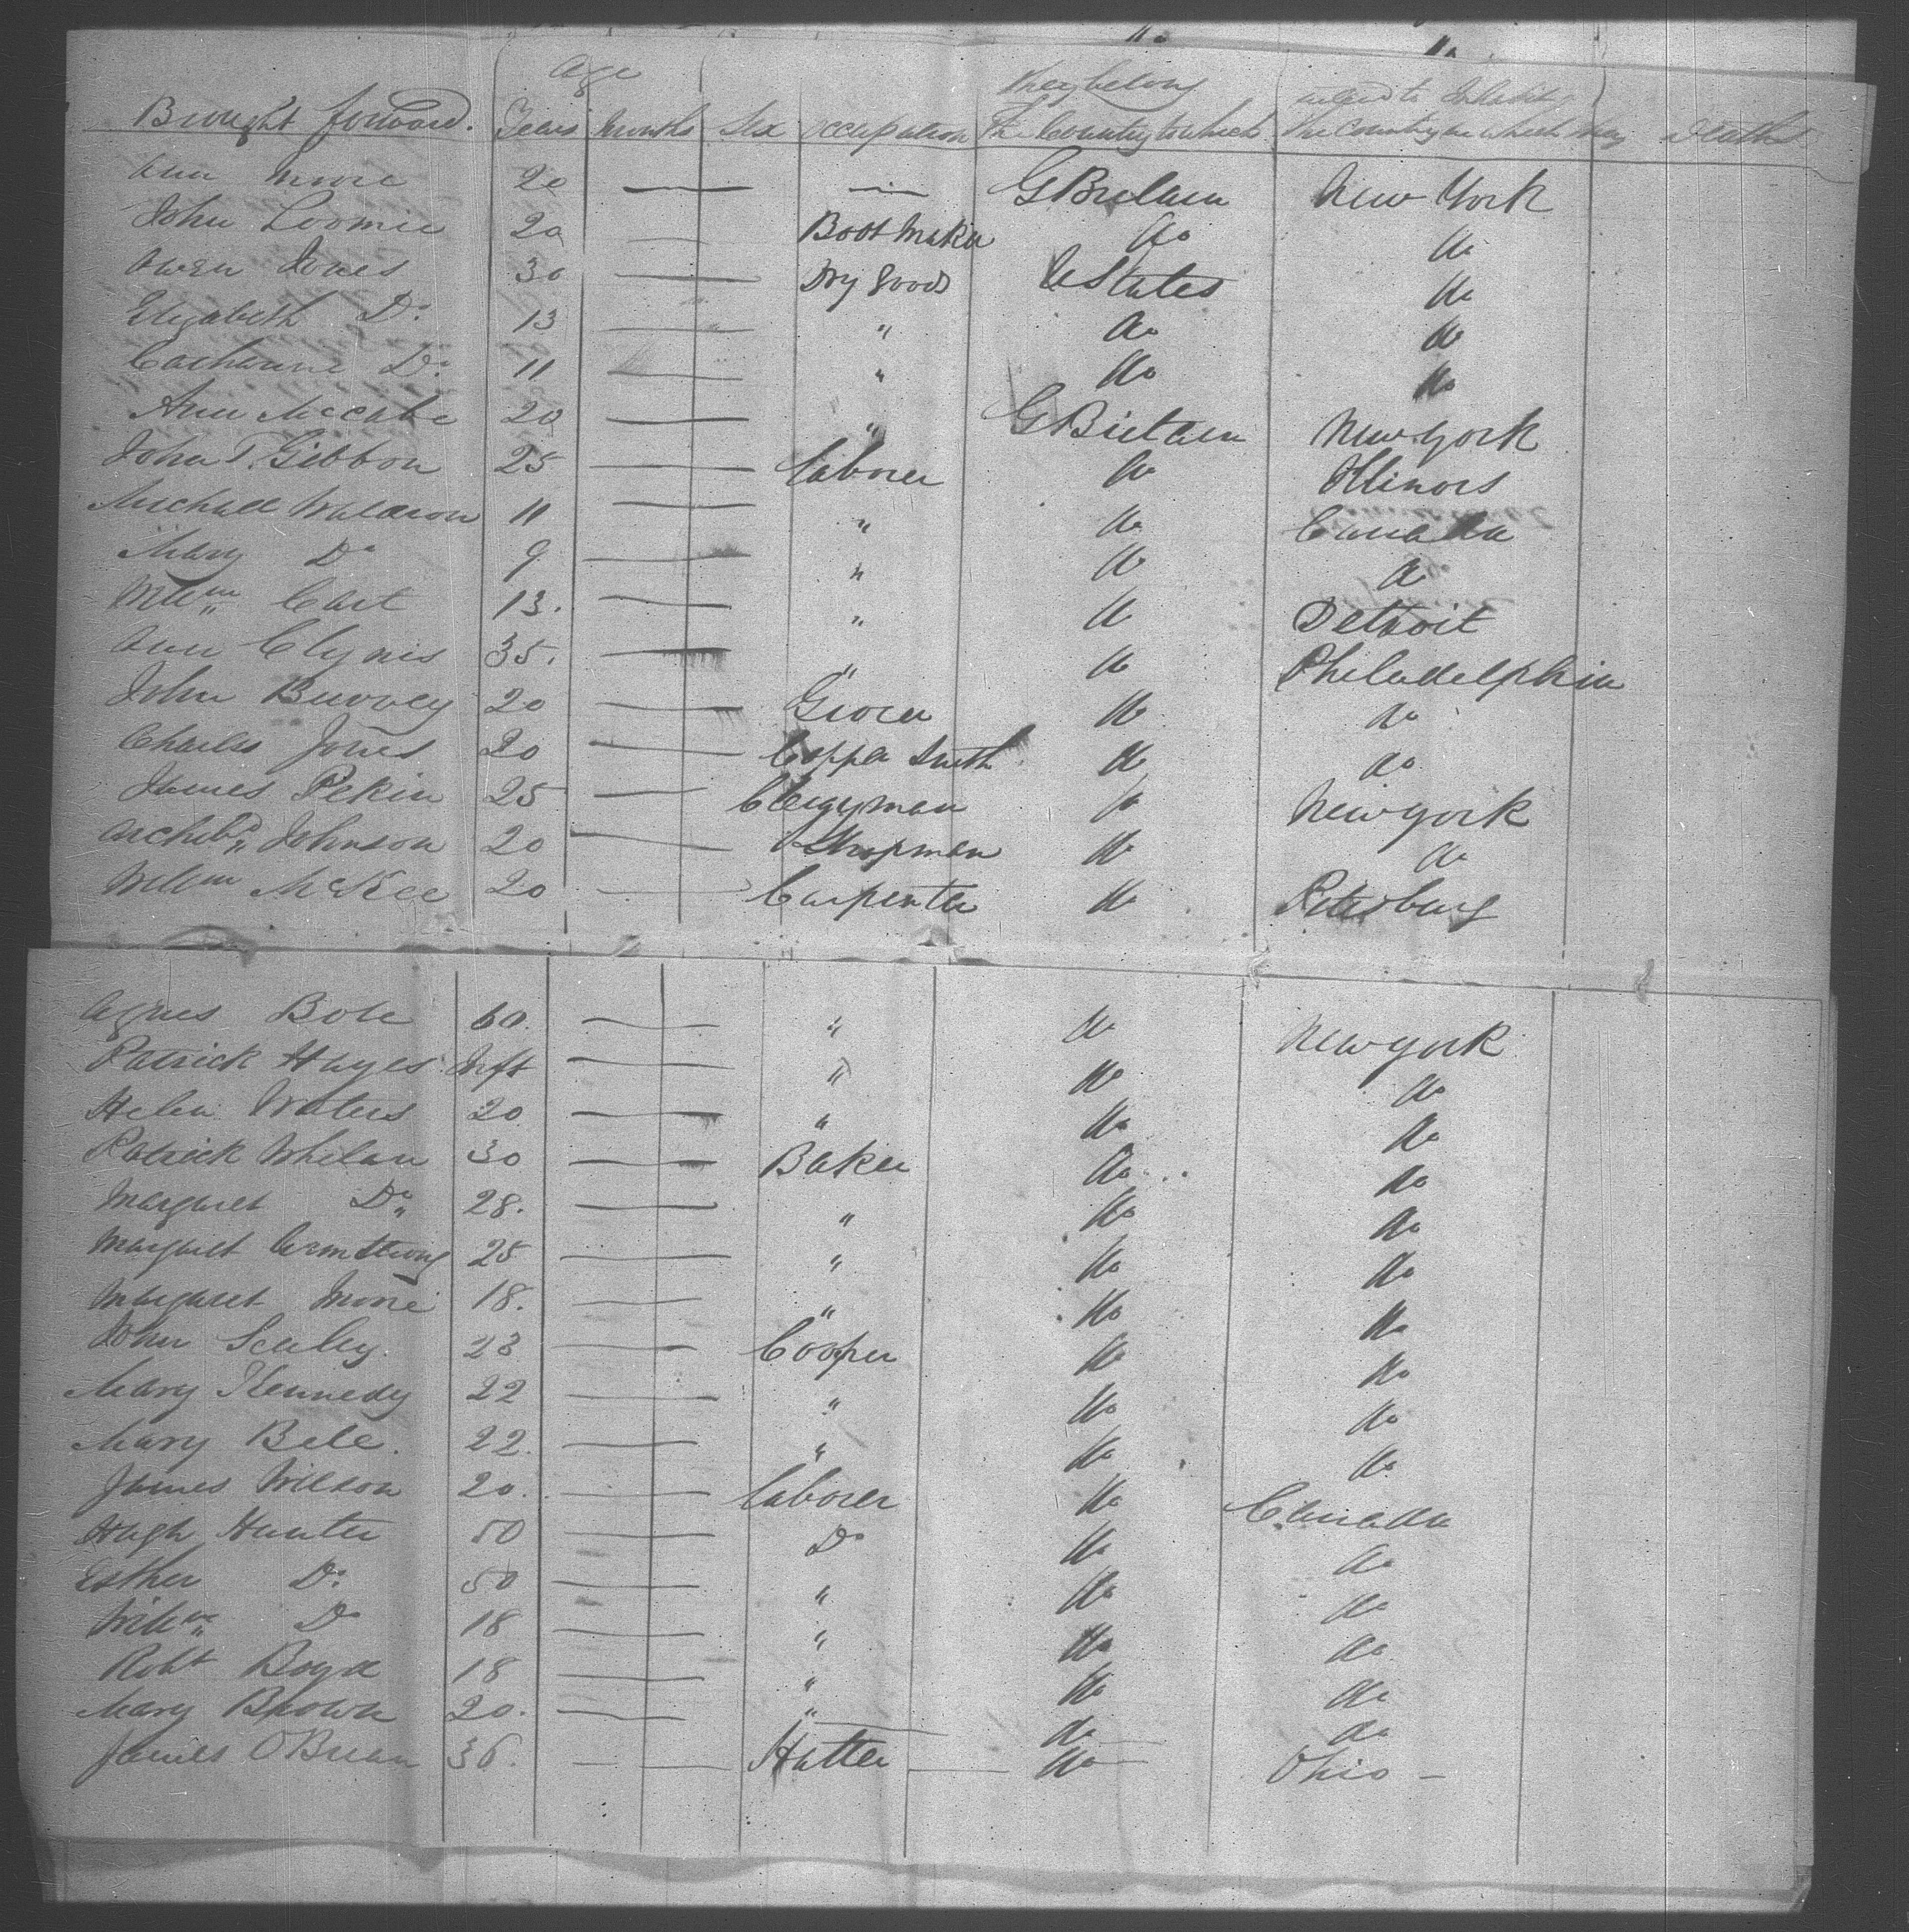 Age they belong intend to Inhabit
Brought forward. Years Months Sex occupation The Country to which the Country in which they Deaths
Ann Moore 20 — — G Britain New York
John Loomie 20 — Boot Maker do do
Owen Jones 30 — Dry Goods U States do
Elizabeth Do 13 — " do do
Catherine Do 11 — " do do
Ann McCabe 20 — " G Britain New york
John T. Gibbon 25 — laborer do Illinois
Michall Waldron 11 — " do Canada
Mary Do 9 — " do do
Willm Cart 13. — " do Detroit
Ann Clynis 35. — " do Philadelphia
John 20 — Grocer do do
Charles Jones 20 — Copper Smith do do
James Pekin 25 — Clergyman do New york
Archibd Johnson 20 — Shopman do do
Willm McKee 20 — Carpenter do Petersburg
Agnes Bole 60. — " do New york
Patrick Hayes Inft — " do do
Helen Waters 20 — " do do
Patrick Whelan 30 — Baker do do
Margaret Do 28. — " do do
Margaret Armstrong 25 — " do do
Margaret Moore 18. — " do do
John Scaley 23 — Cooper do do
Mary Kennedy 22 — " do do
Mary Bele. 22. — " do do
James Wilson 20. — laborer do Canada
Hugh Hunter 50 — Do do do
Esther Do 50 — " do do
Willm Do 18 — " do do
Robt Boyd 18 — " do do
Mary Brown 20. — " do do
James O Brian 36. — Hatter do Ohio —